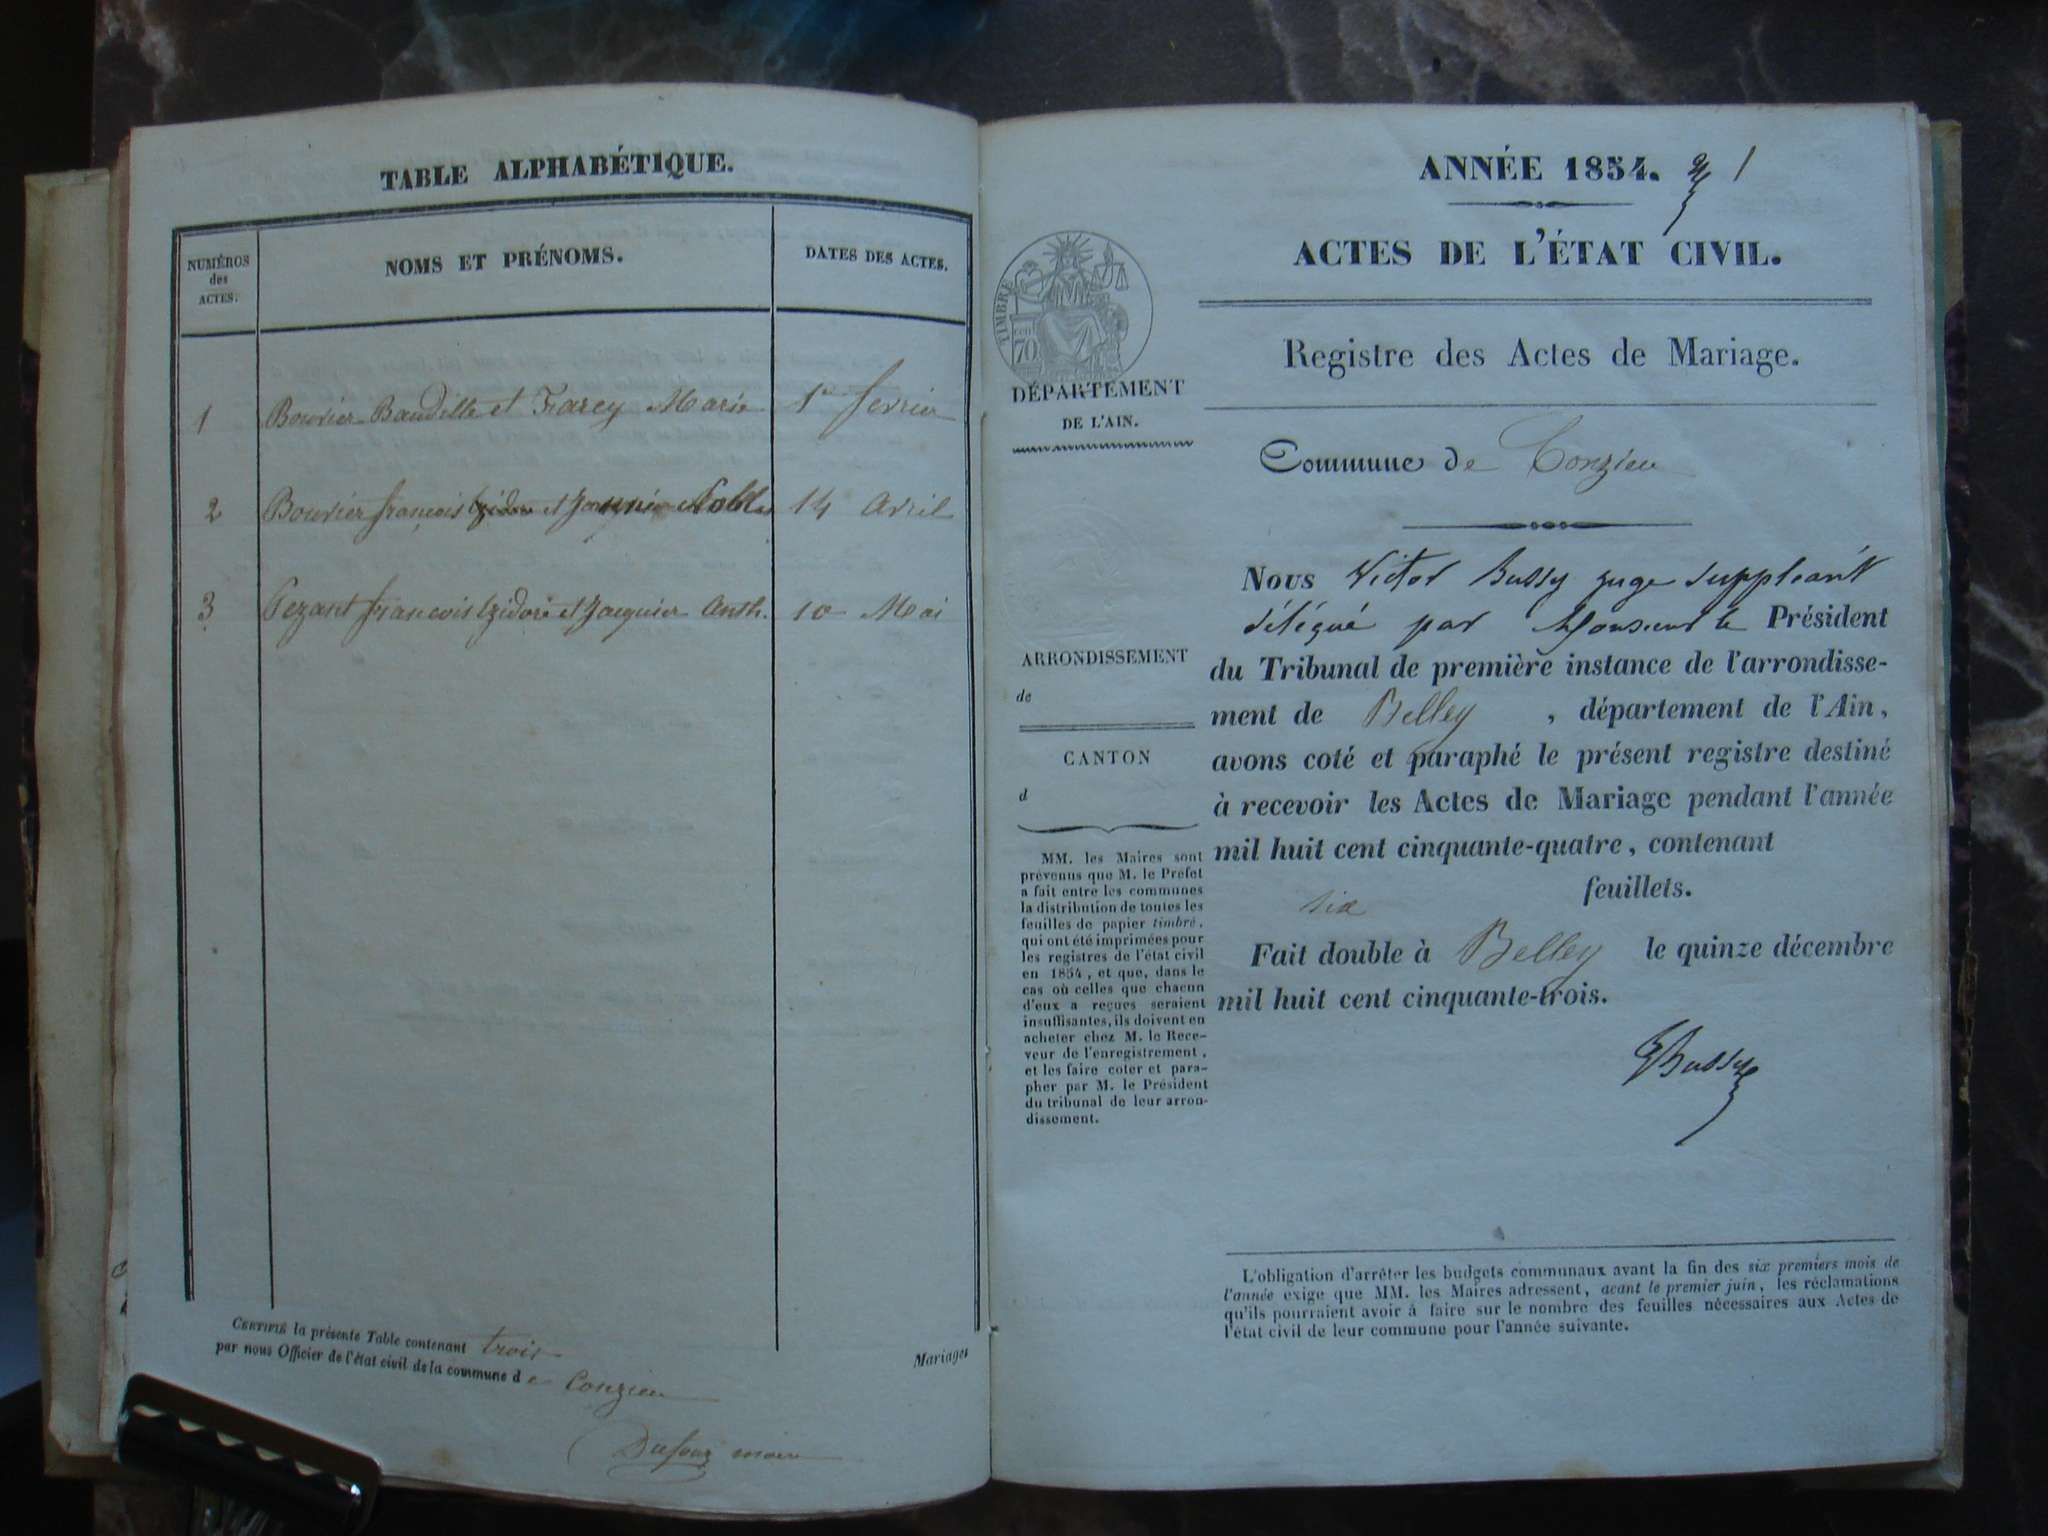 TABLE ALPHABÉTIQUE.
NUMÉROS des ACTES.
NOMS ET PRÉNOMS.
DATES DES ACTES.
1 Bouvier Baudille et Frarey Marie 1er fevrier
2 Bouvier françois et 14 Avril
3 Pezant francois Izidore et Jacquier Anth. 10 Mai
CERTIFIÉ la présente Table contenant trois Mariages
par nous Officier de l'état civil de la commune de Conzieu
Dufour maire
ANNÉE 1854. 1
ACTES DE L'ÉTAT CIVIL.
TIMBRE
cent 70
DÉPARTEMENT
DE L'AIN.
Registre des Actes de Mariage.
Commune de Conzieu
Nous Victor Bussy juge suppléant
délégué par Monsieur le Président
du Tribunal de première instance de l'arrondisse-
ment de Belley, département de l'Ain,
avons coté et paraphé le présent registre destiné
à recevoir les Actes de Mariage pendant l'année
mil huit cent cinquante-quatre, contenant
six feuillets.
Fait double à Belley le quinze décembre
mil huit cent cinquante-trois.
Bussy
ARRONDISSEMENT
de
CANTON
d
MM. les Maires sont
prévenus que M. le Préfet
a fait entre les communes
la distribution de toutes les
feuilles de papier timbré,
qui ont été imprimées pour
les registres de l'état civil
en 1854, et que, dans le
cas où celles que chacun
d'eux a reçues seraient
insuffisantes, ils doivent en
acheter chez M. le Rece-
veur de l'enregistrement,
et les faire coter et para-
pher par M. le Président
du tribunal de leur arron-
dissement.
L'obligation d'arrêter les budgets communaux avant la fin des six premiers mois de
l'année exige que MM. les Maires adressent, avant le premier juin, les réclamations
qu'ils pourraient avoir à faire sur le nombre des feuilles nécessaires aux Actes de
l'état civil de leur commune pour l'année suivante.